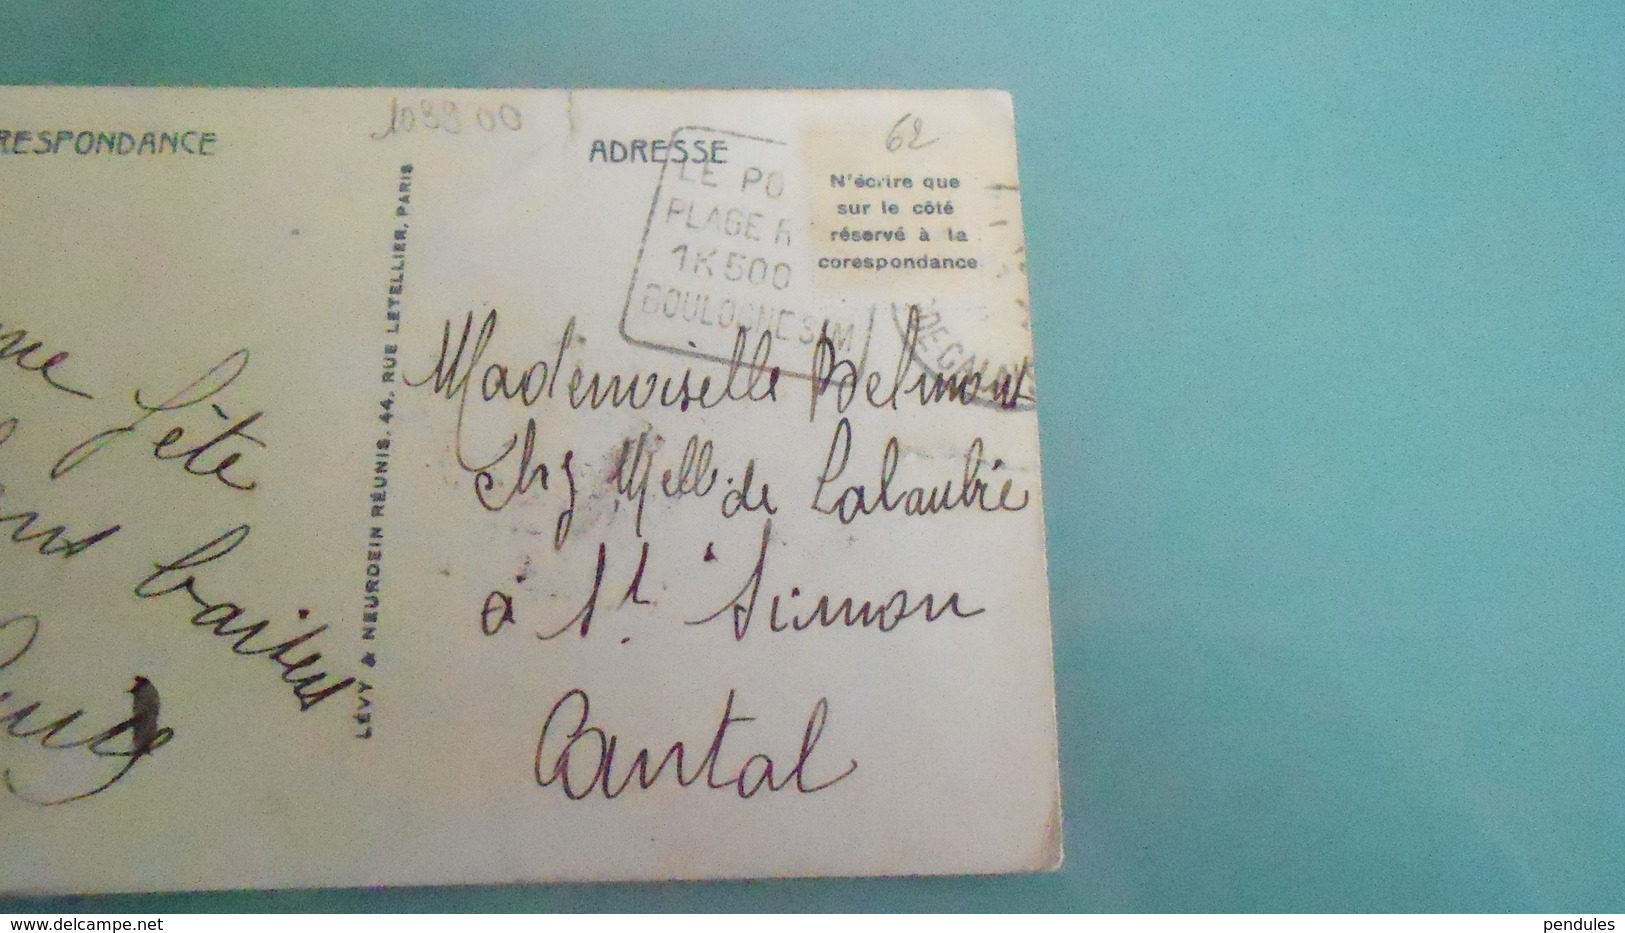 RESPONDANCE
109900
ADRESSE
62
LE PO
PLAGE
1K500
BOULOGNE S/M
DE CALAIS
N'écrire que
sur le côté
réservé à la
corespondance
LÉVY & NEURDEIN RÉUNIS, 44, RUE LETELLIER, PARIS
fête
baisers
Mademoiselle Belmont
chez Melle de Labaubie
à St. Simon
Cantal
delcampe.net
pendules